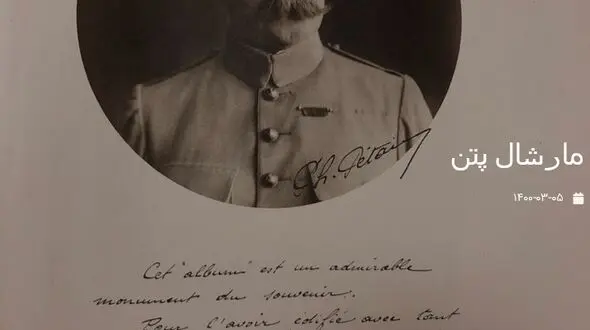 Ph. Pétain
مارشال پتن
۱۴۰۰-۰۳-۰۵
Cet "album" est un admirable
monument du souvenir.
Pour l'avoir édifié avec tant